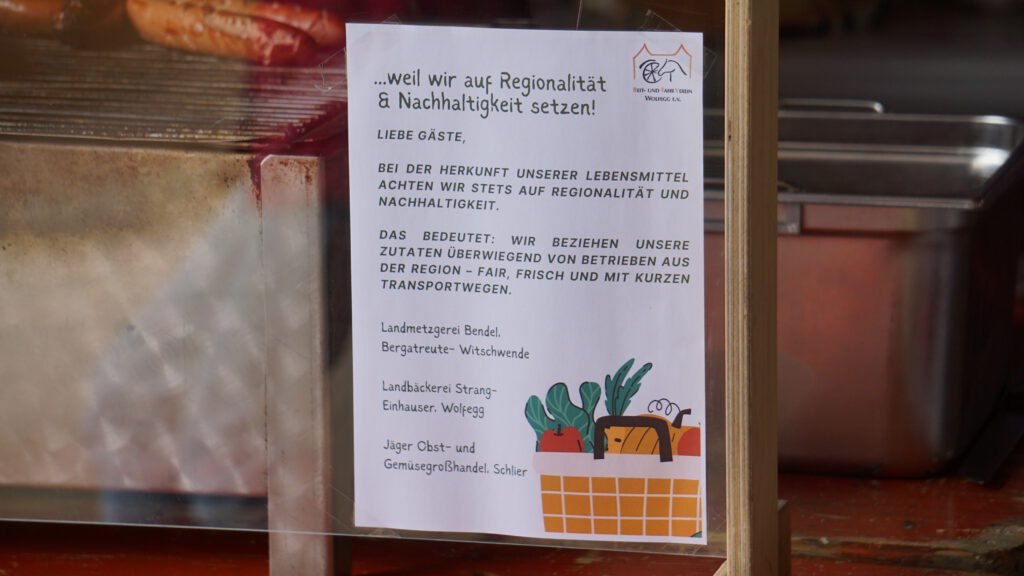 ...weil wir auf Regionalität
& Nachhaltigkeit setzen!
REIT- UND FAHRVEREIN
WOLFEGG E.V.
LIEBE GÄSTE,
BEI DER HERKUNFT UNSERER LEBENSMITTEL
ACHTEN WIR STETS AUF REGIONALITÄT UND
NACHHALTIGKEIT.
DAS BEDEUTET: WIR BEZIEHEN UNSERE
ZUTATEN ÜBERWIEGEND VON BETRIEBEN AUS
DER REGION – FAIR, FRISCH UND MIT KURZEN
TRANSPORTWEGEN.
Landmetzgerei Bendel,
Bergatreute- Witschwende
Landbäckerei Strang-
Einhauser, Wolfegg
Jäger Obst- und
Gemüsegroßhandel, Schlier